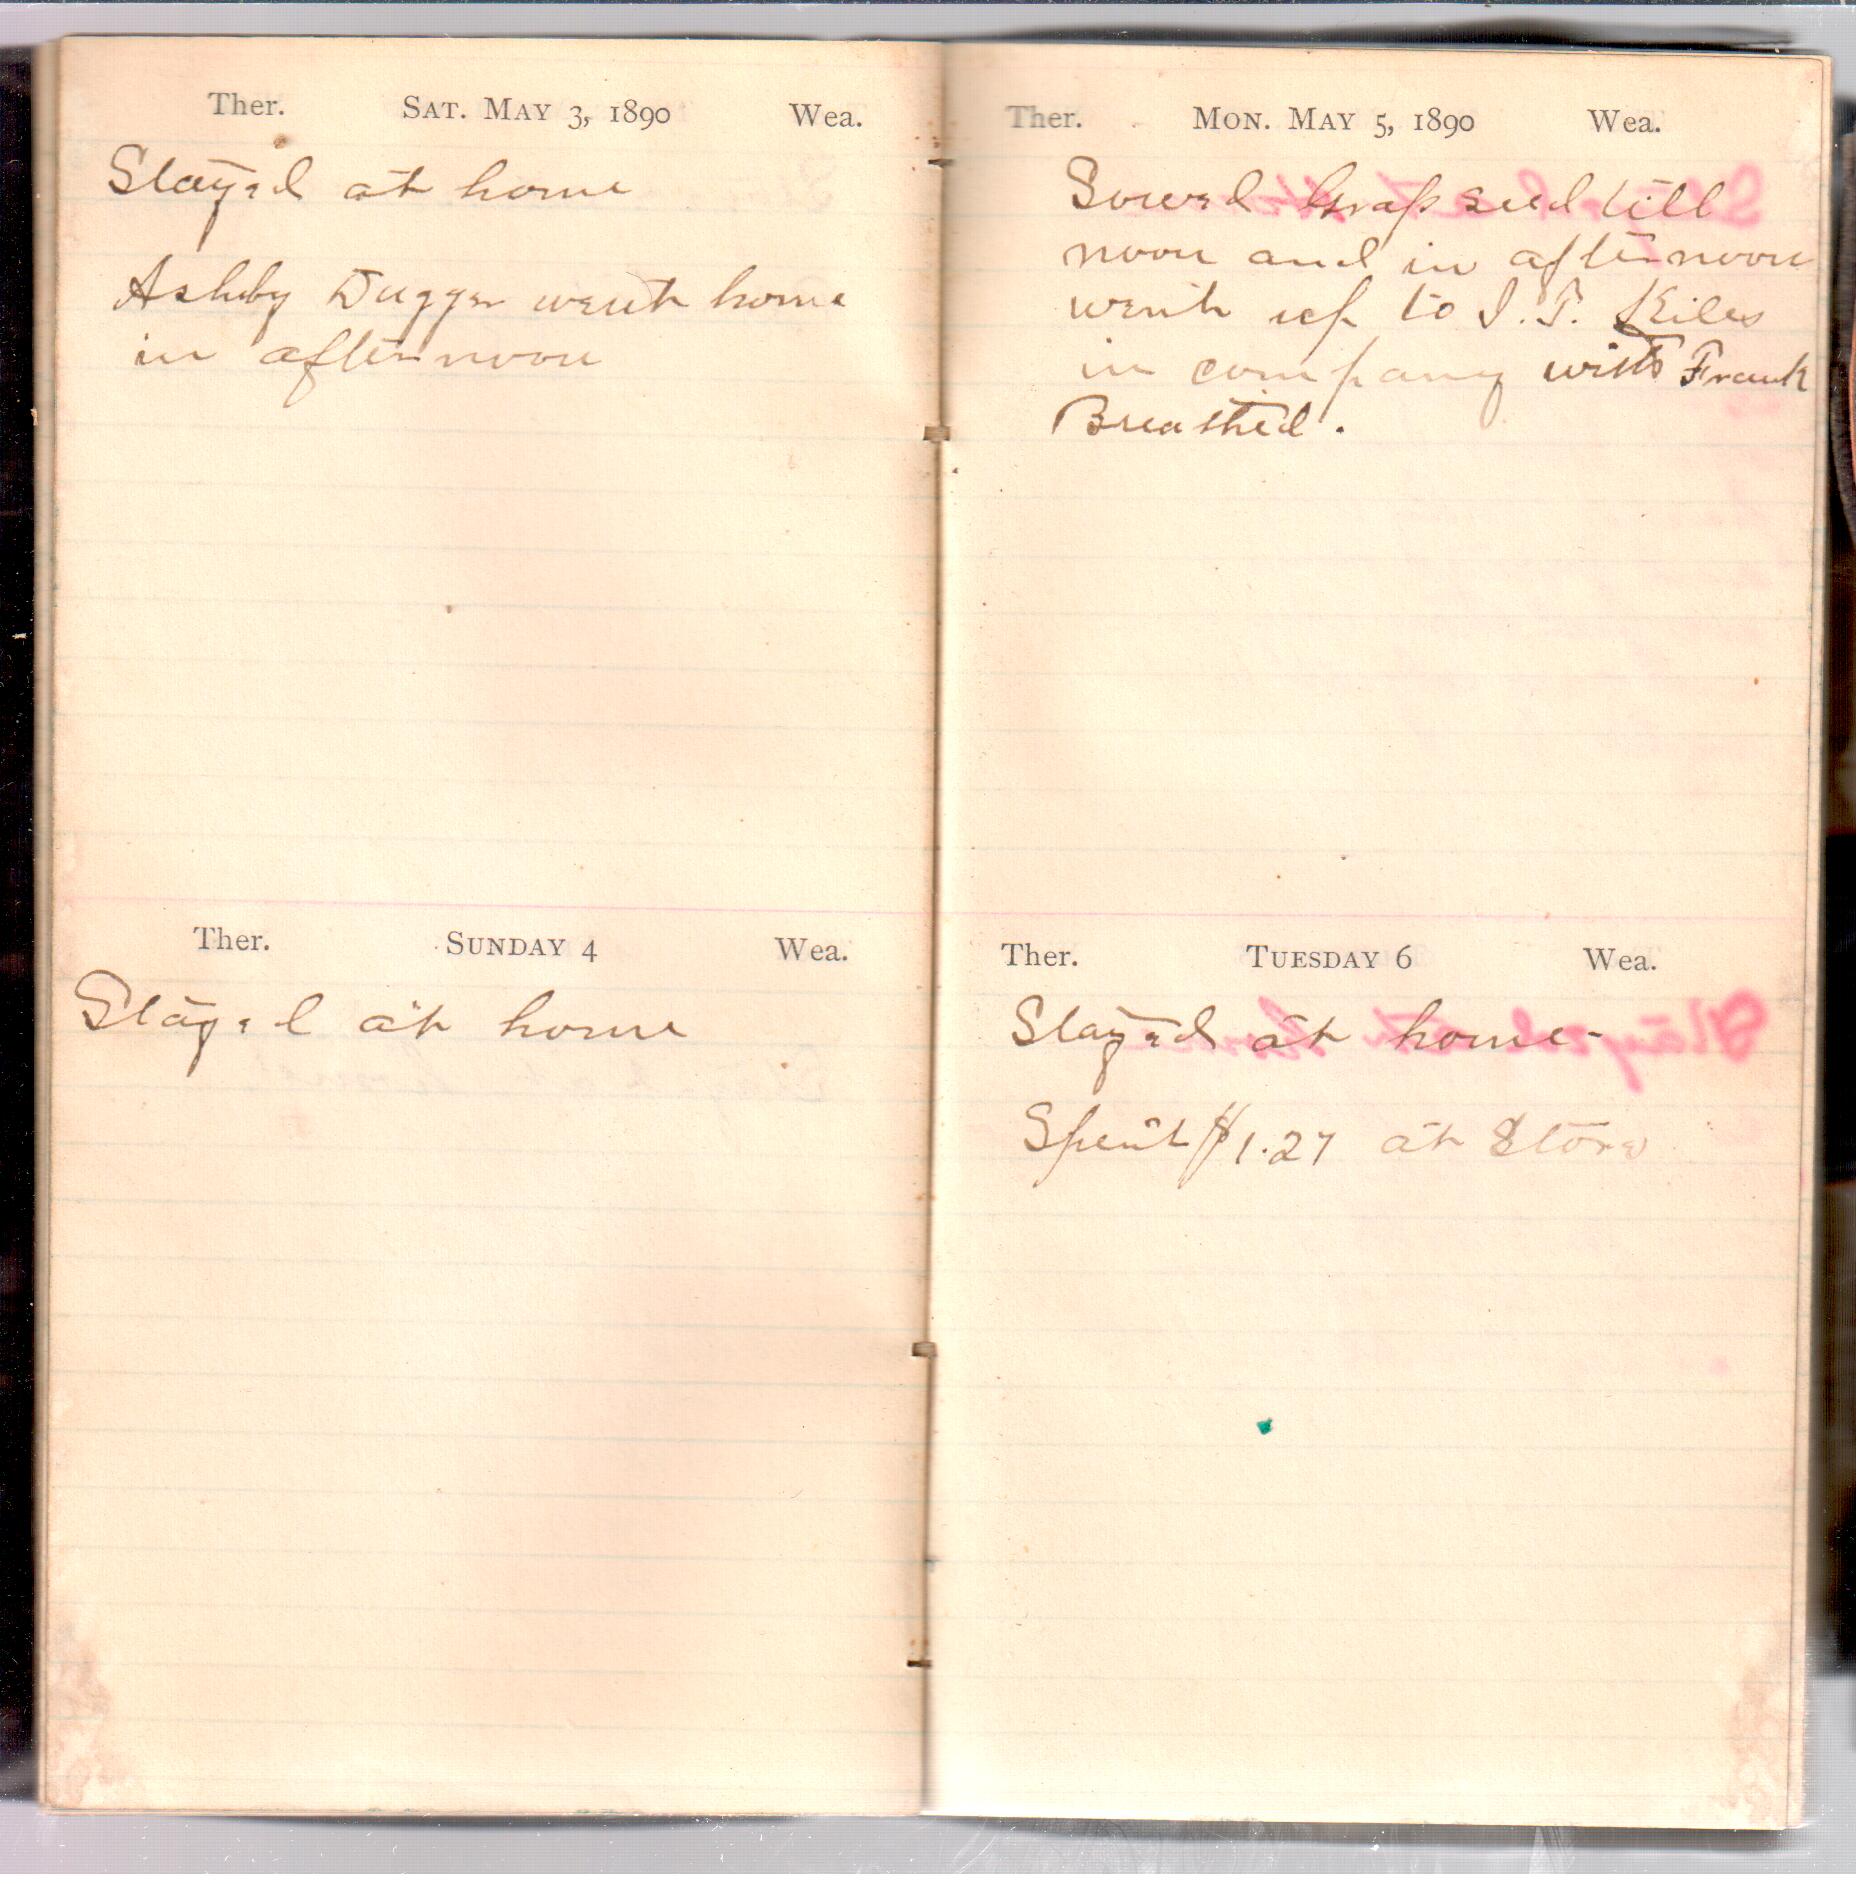 Ther. SAT. MAY 3, 1890 Wea.
Stayed at home
Ashby Dugger went home
in afternoon
Ther. SUNDAY 4 Wea.
Stayed at home
Ther. MON. MAY 5, 1890 Wea.
Sowed Grass seed till
noon and in afternoon
went up to I. T. Kiles
in company with Frank
Breathed.
Ther. TUESDAY 6 Wea.
Stayed at home-
Spent $1.27 at Store